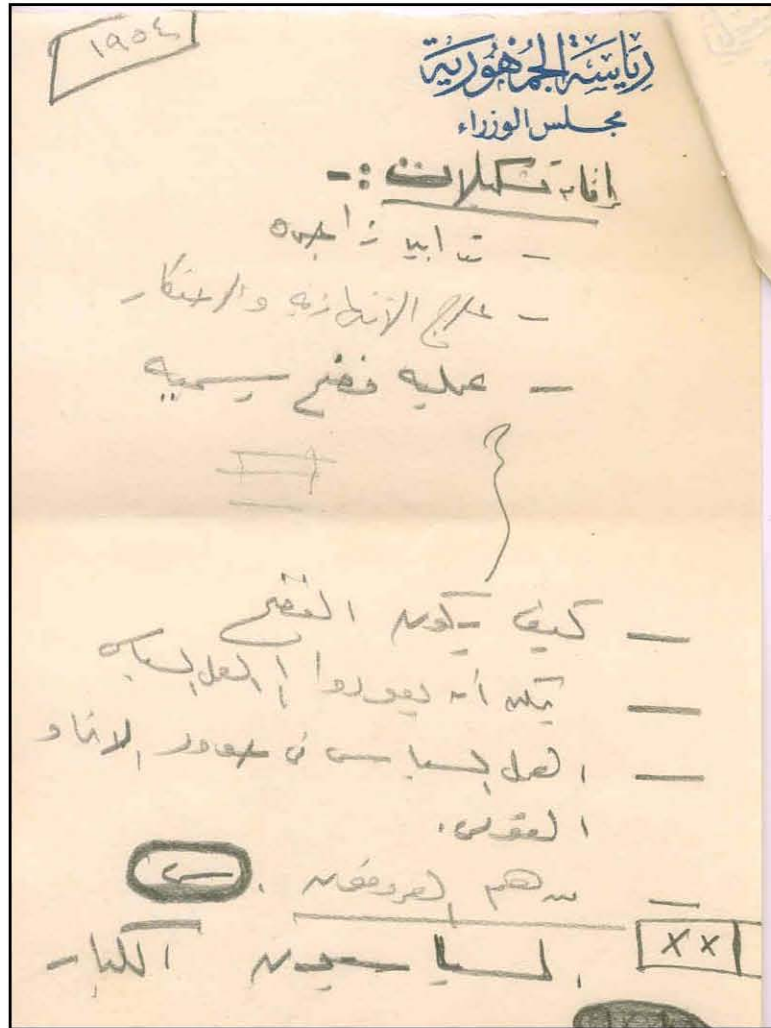 ١٩٥٤
رياسة الجمهورية
مجلس الوزراء
تشكيلات :-
- تدابير
- علاج الانتهازية والاحتكار
- عملية فضح سريعة
— كيف يكون الفضح
— يمكن أن يعودوا إلى العمل السياسي
— العمل السياسي في حدود الاتحاد
القومى .
— من هم المعروفين .
XX السياسيون الكبار